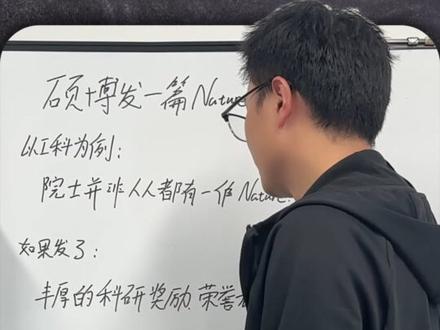 硕博发一篇Nature
以工科为例：
院士并非人人都有一作Nature.
如果发了：
丰厚的科研奖励 荣誉